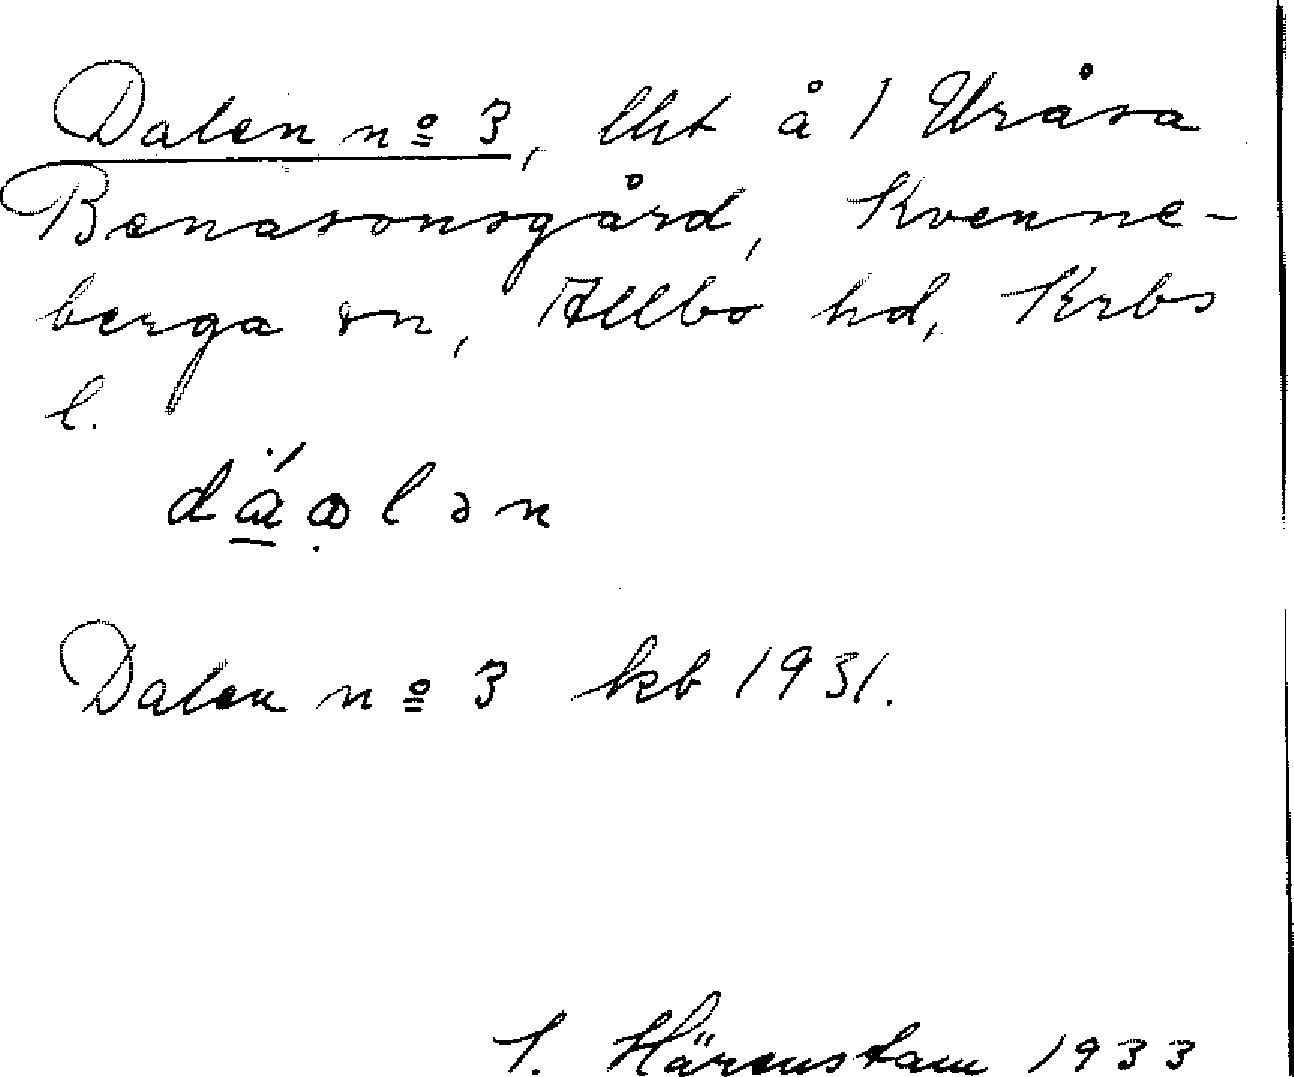 Dalen nº 3, lht å 1 Uråsa
Benasonsgård, Kvenne-
berga sn, Allbo hd, Krbs
l.
Dalen nº 3 kb 1931.
Härenstam 1933